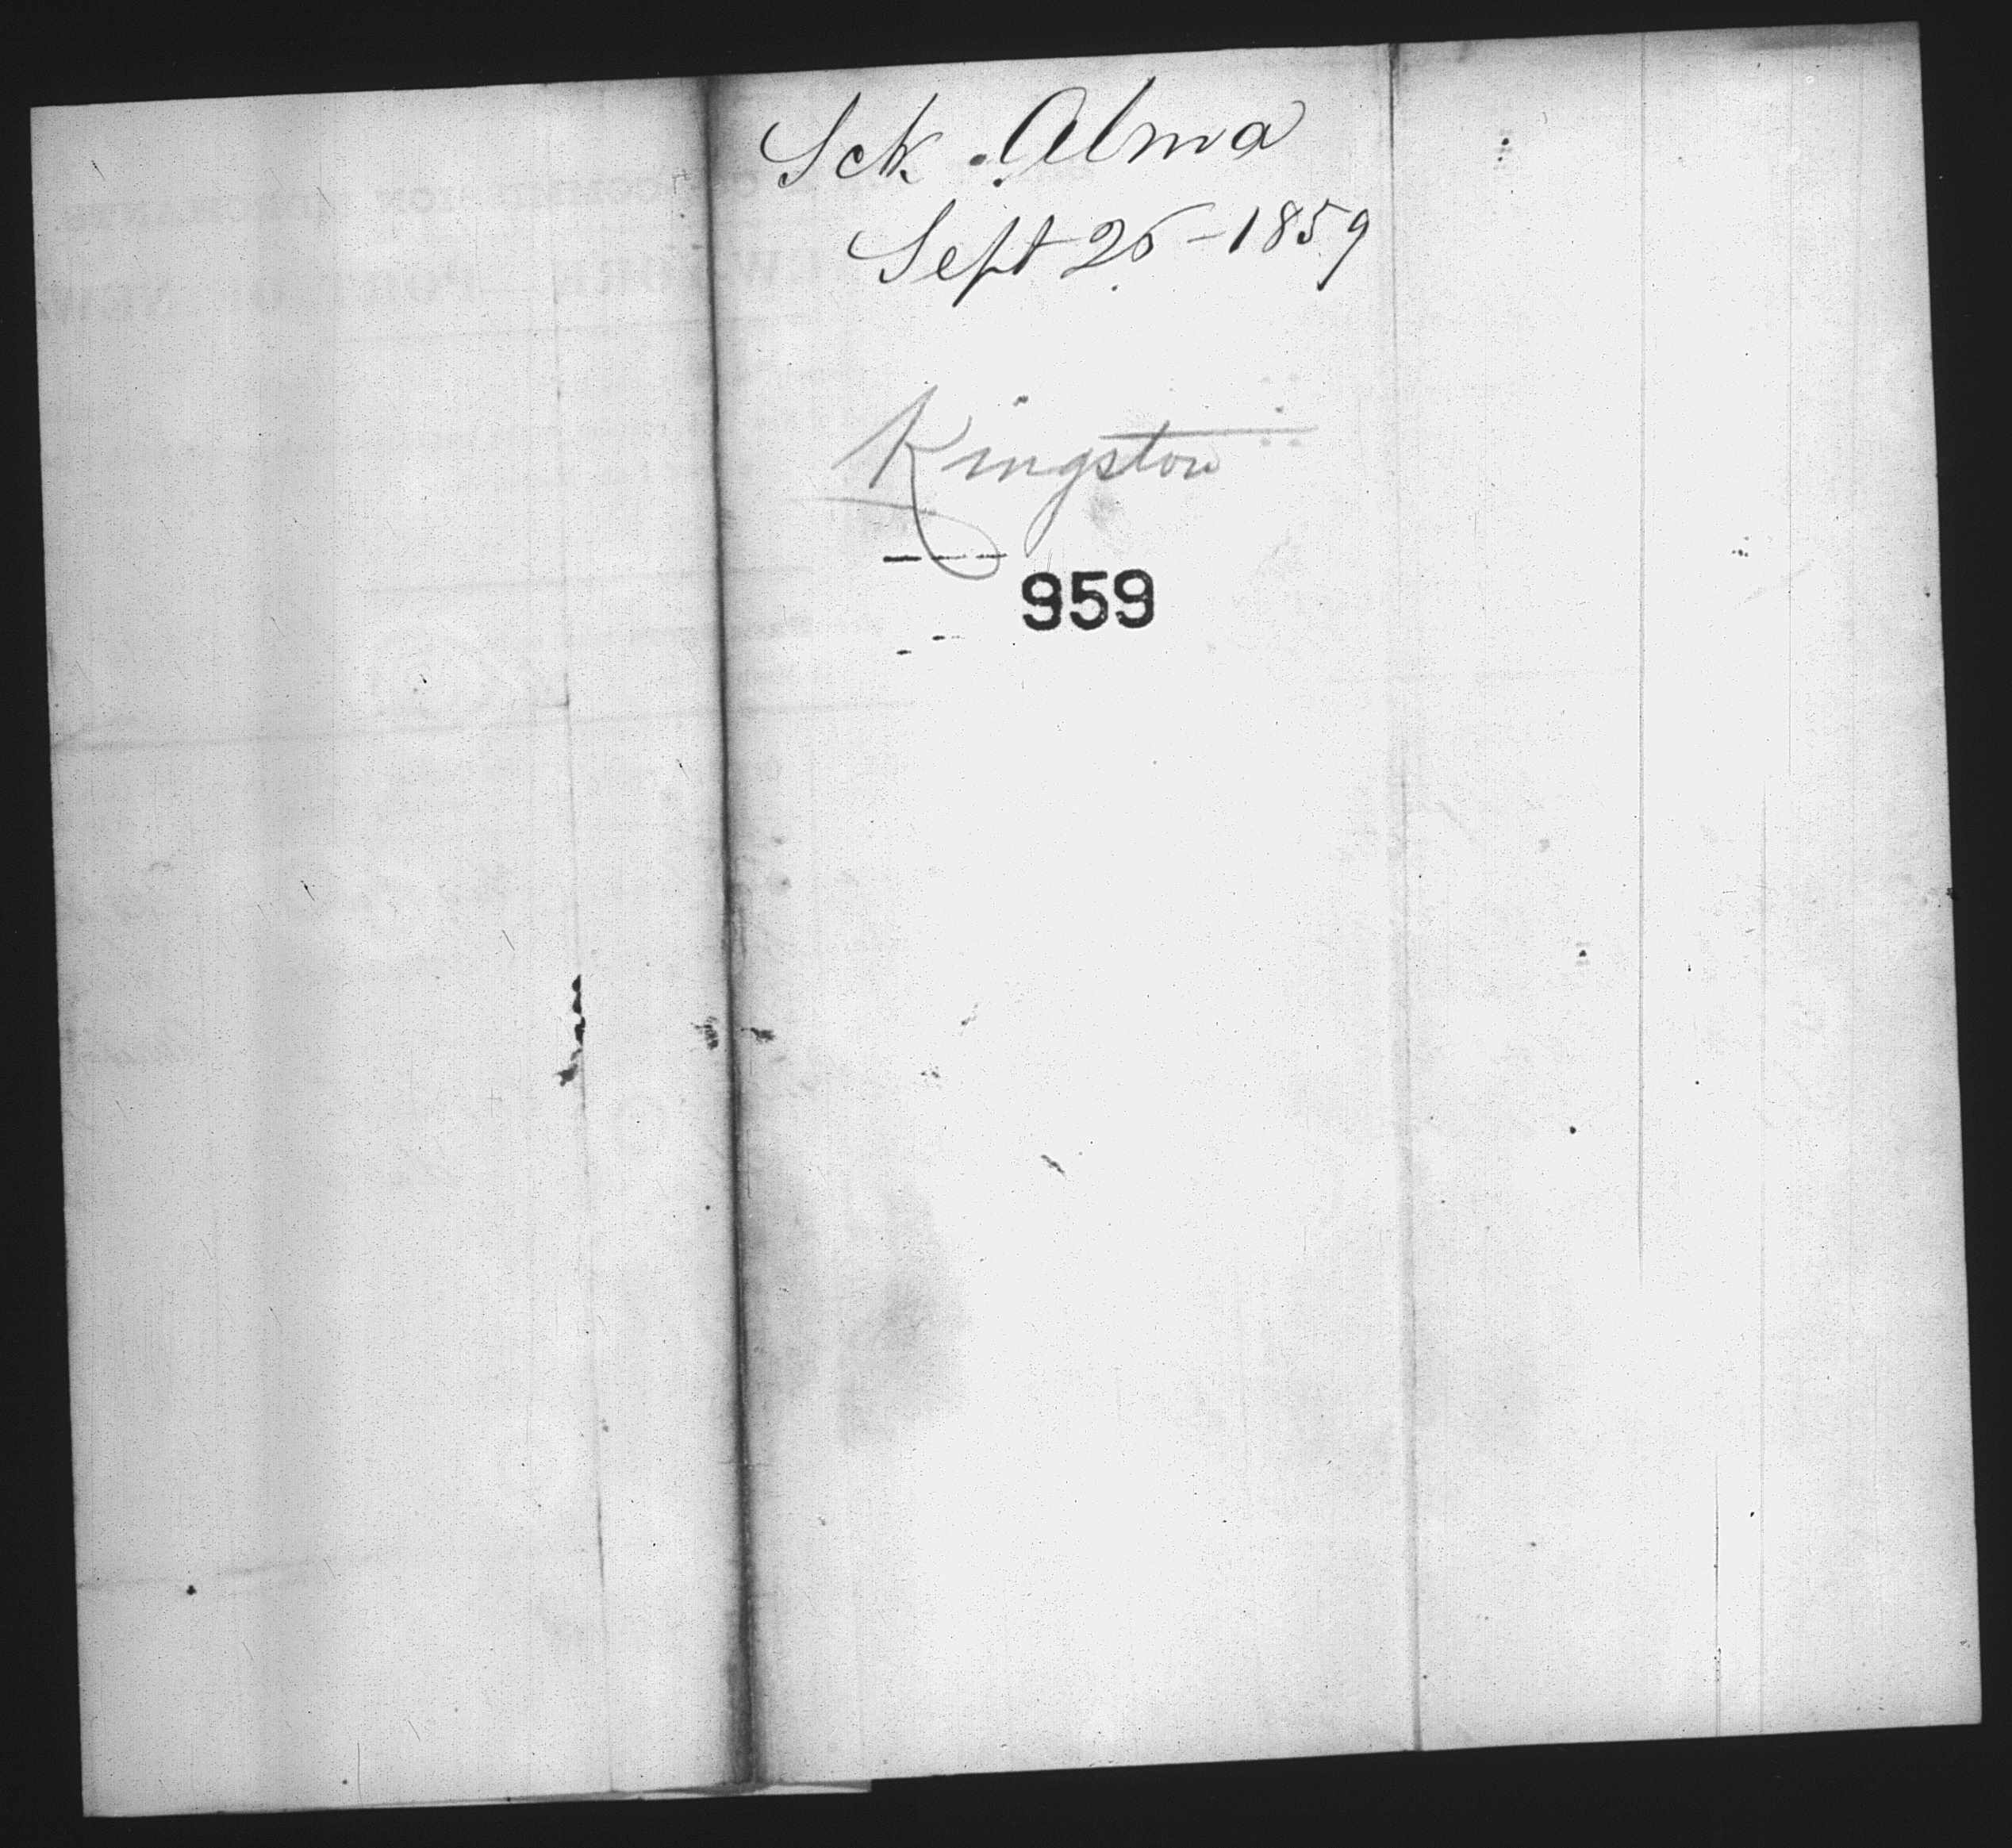 Sch Alma
Sept 26 - 1859
Kingston
959